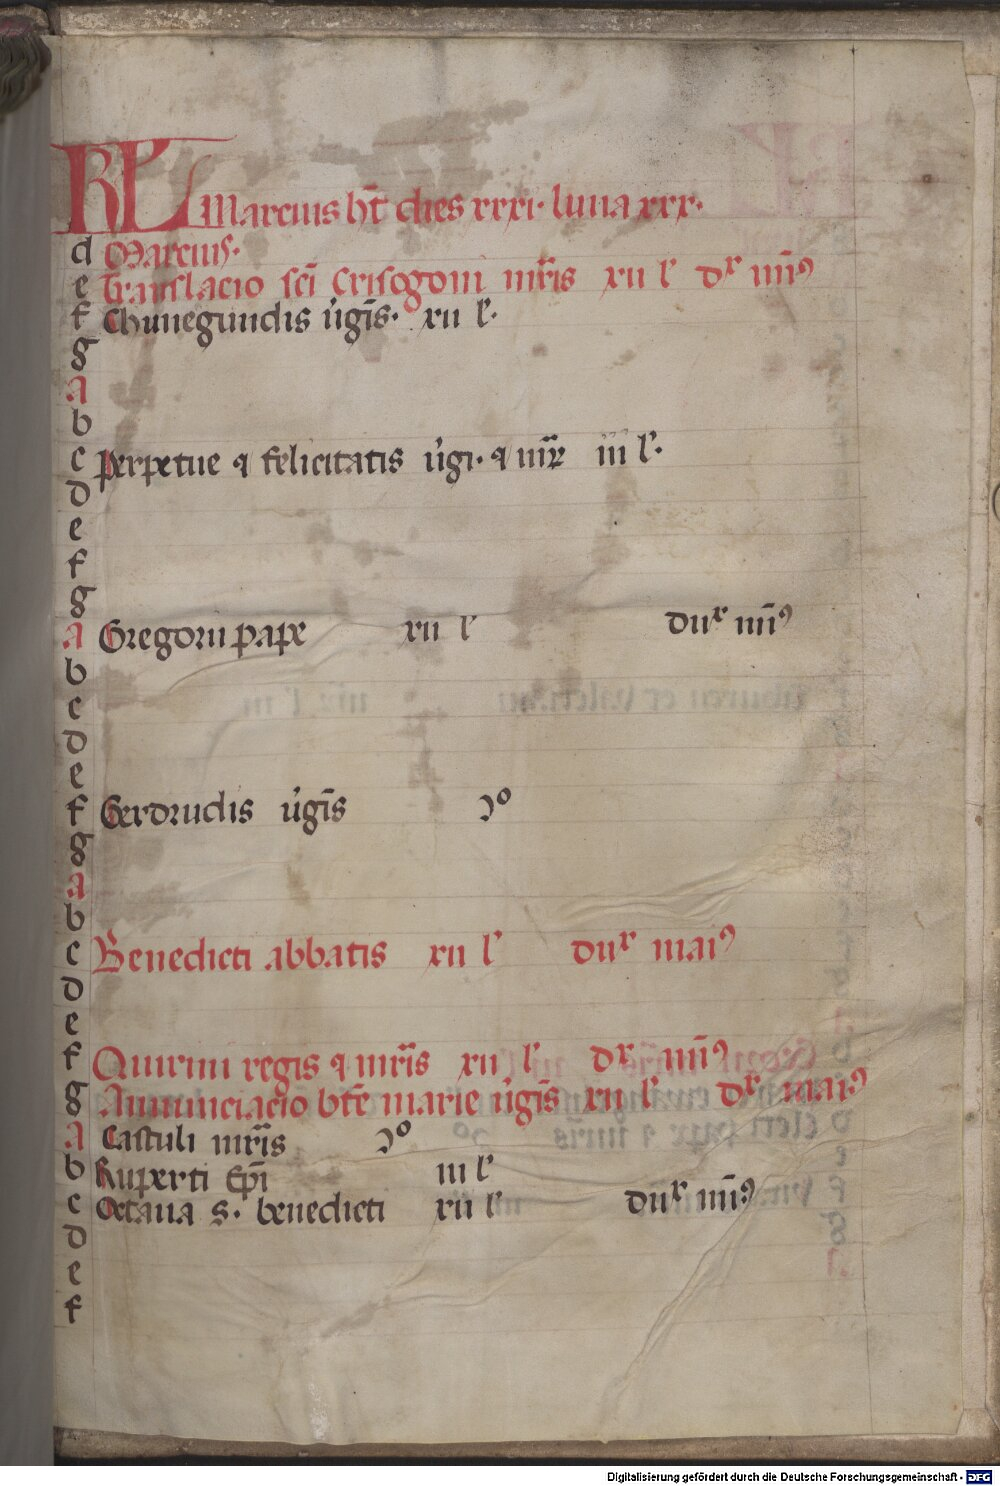 KL Marcius ht dies xxxi· luna xxx·
d Marcius·
e Translacio sci Crisogoni mris xii l' dr min9
f Chunegundis u'gis· xii l'·
g
a
b
c Perpetue ⁊ felicitatis u'gi· ⁊ mr iii l'·
d
e
f
g
a Gregorii pape xii l' dur min9
b
c
d
e
f Gerdrudis u'gis ↄº
g
a
b
c Benedicti abbatis xii l' dur mai9
d
e
f Quirini regis ⁊ mris xii l' dr min9
g Annunciacio bte marie u'gis xii l' dr mai9
a Castuli mris ↄº
b Ruperti Epi iii l'
c Octaua s· benedicti xii l' dur min9
d
e
f
Digitalisierung gefördert durch die Deutsche Forschungsgemeinschaft - DFG